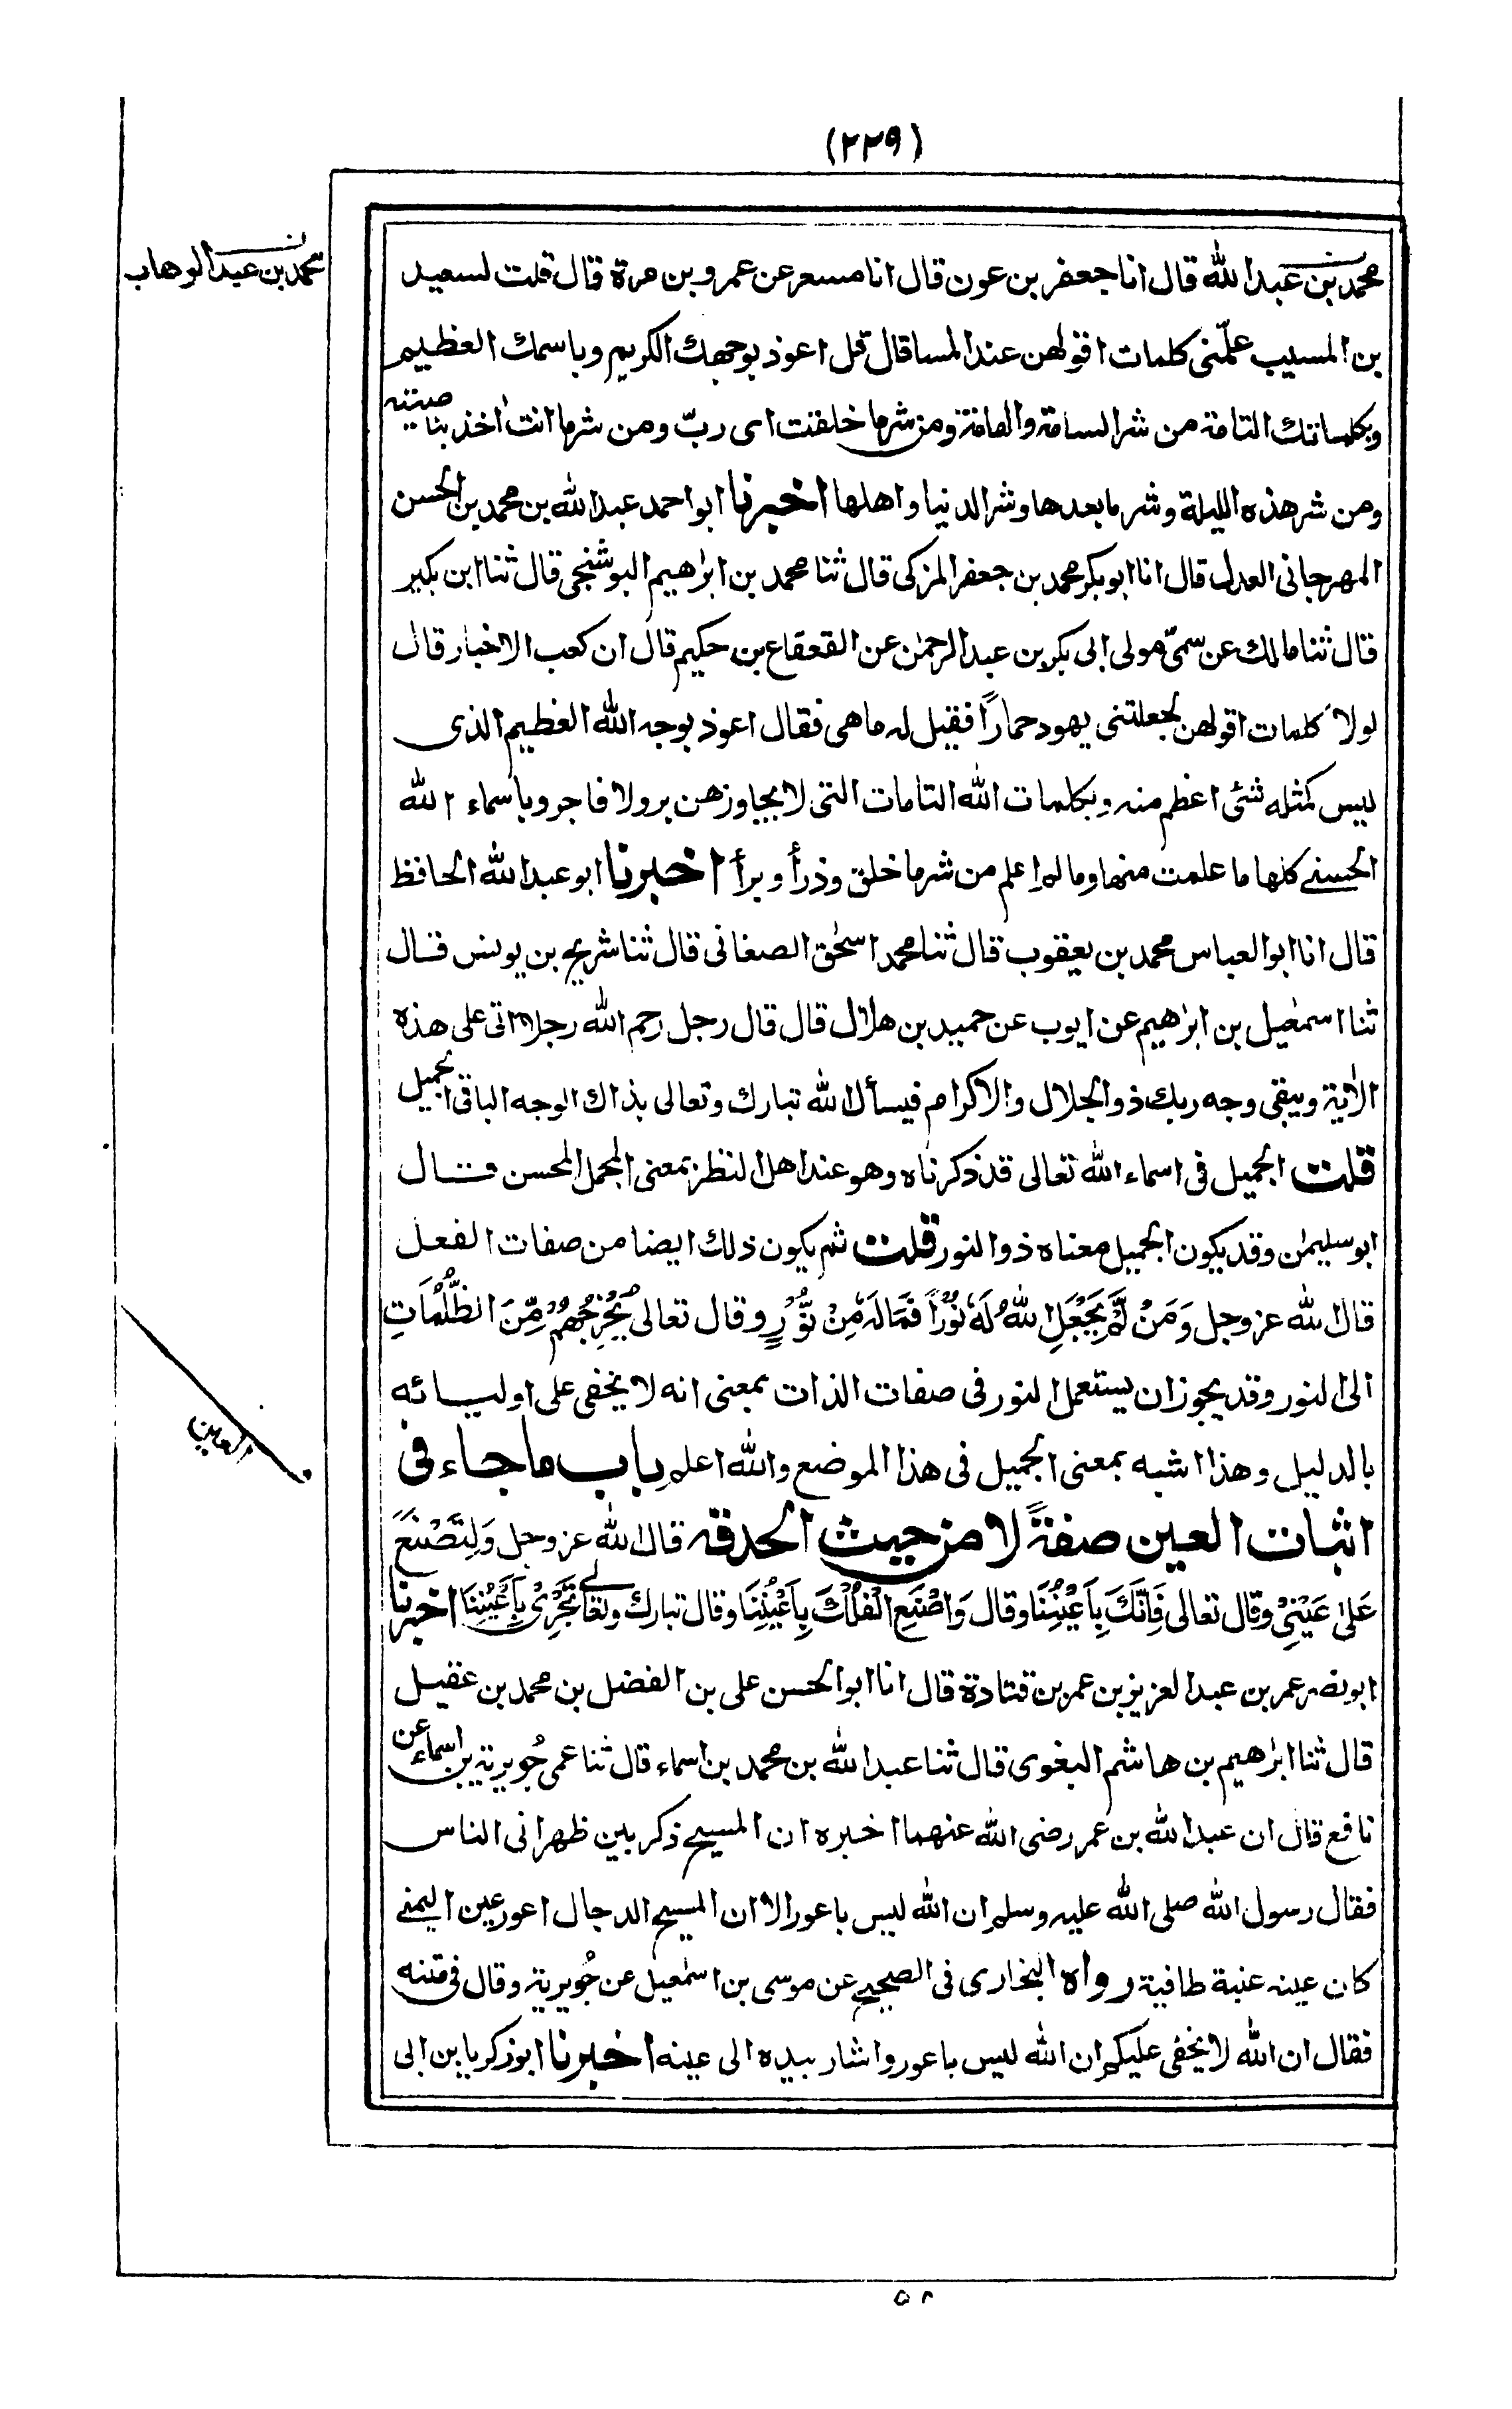 (٢٢٩)
محمد بن عبد الوهاب
محمد بن عبد الله قال انا جعفر بن عون قال انا مسعر عن عمرو بن مرة قال قلت لسعيد
بن المسيب علّمنى كلمات اقولهن عند المسا قال قل اعوذ بوجهك الكريم وباسمك العظيم
وبكلماتك التامة من شر السامة والعامة ومن شر ما خلقت اى ربّ ومن شر ما انت اٰخذ بناصيته
ومن شر هذه الليلة وشر ما بعدها وشر الدنيا واهلها اخبرنا ابو احمد عبد الله بن محمد بن الحسن
المهرجانى العدل قال انا ابو بكر محمد بن جعفر المزكى قال ثنا محمد بن ابراهيم البوشنجى قال ثنا ابن بكير
قال ثنا مالك عن سمىّ مولى ابى بكر بن عبد الرحمٰن عن القعقاع بن حكيم قال ان كعب الاخبار قال
لولا كلمات اقولهن لجعلتنى يهود حماراً فقيل له ما هى فقال اعوذ بوجه الله العظيم الذى
ليس كمثله شئ اعظم منه وبكلمات الله التامات التى لا يجاوزهن بر ولا فاجر وباسماء الله
الحسنے كلها ما علمت منها وما لم اعلم من شر ما خلق وذرأ وبرأ اخبرنا ابو عبد الله الحافظ
قال انا ابو العباس محمد بن يعقوب قال ثنا محمد اسحٰق الصغانى قال ثنا شريح بن يونس قال
ثنا اسمٰعيل بن ابرٰهيم عن ايوب عن حميد بن هلال قال قال رجل رحم الله رجلا اتى على هذه
الاٰية ويبقى وجه ربك ذو الجلال والاكرام فيسأل الله تبارك وتعالى بذاك الوجه الباقى الجميل
قلت الجميل فى اسماء الله تعالى قد ذكرناه وهو عند اهل النظر بمعنى المجمل المحسن قال
ابو سليمٰن وقد يكون الجميل معناه ذو النور قلت ثم يكون ذلك ايضا من صفات الفعل
قال الله عز وجل وَمَنْ لَّمْ يَجْعَلِ اللّٰهُ لَهٗ نُوْرًا فَمَا لَهٗ مِنْ نُّوْرٍ وقال تعالى يُخْرِجُهُمْ مِّنَ الظُّلُمَاتِ
الى النور وقد يجوز ان يستعمل النور فى صفات الذات بمعنى انه لا يخفى على اوليائه
بالدليل وهذا اشبه بمعنى الجميل فى هذا الموضع والله اعلم باب ما جاء فى
اثبات العين صفةً لا من حيث الحدقه قال الله عز وجل وَلِتُصْنَعَ
العين
عَلىٰ عَيْنِىْ وقال تعالى فَاِنَّكَ بِاَعْيُنِنَا وقال وَاصْنَعِ الْفُلْكَ بِاَعْيُنِنَا وقال تبارك وتعالے تَجْرِىْ بِاَعْيُنِنَا اخبرنا
ابو نصر عمر بن عبد العزيز بن عمر بن قتادة قال انا ابو الحسن على بن الفضل بن محمد بن عقيل
قال ثنا ابرٰهيم بن هاشم البغوى قال ثنا عبد الله بن محمد بن اسماء قال ثنا عمى جُويرية بن اسماء عن
نافع قال ان عبد الله بن عمر رضى الله عنهما اخبره ان المسيح ذكر بين ظهرانى الناس
فقال رسول الله صلى الله عليه وسلم ان الله ليس باعور الا ان المسيح الدجال اعور عين اليمنے
كان عينه عنبة طافية رواه البخارى فى الصحيح عن موسى بن اسمٰعيل عن جُويرية وقال فى متنه
فقال ان الله لا يخفى عليكم ان الله ليس باعور واشار بيده الى عينه اخبرنا ابو زكريا بن ابى
٥٨